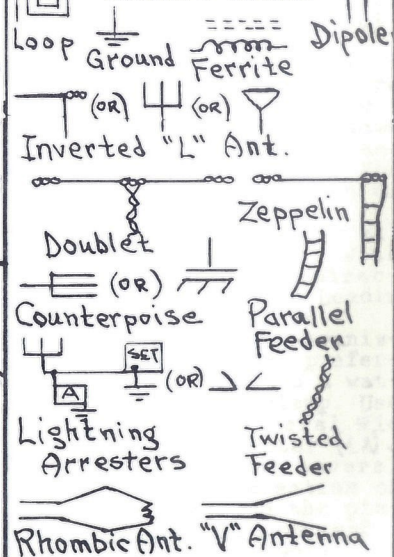 Loop Ground Ferrite Dipole
(OR) (OR)
Inverted "L" Ant.
Doublet Zeppelin
(OR)
Counterpoise Parallel
Feeder
SET
A (OR)
Lightning
Arresters
Twisted
Feeder
Rhombic Ant. "V" Antenna